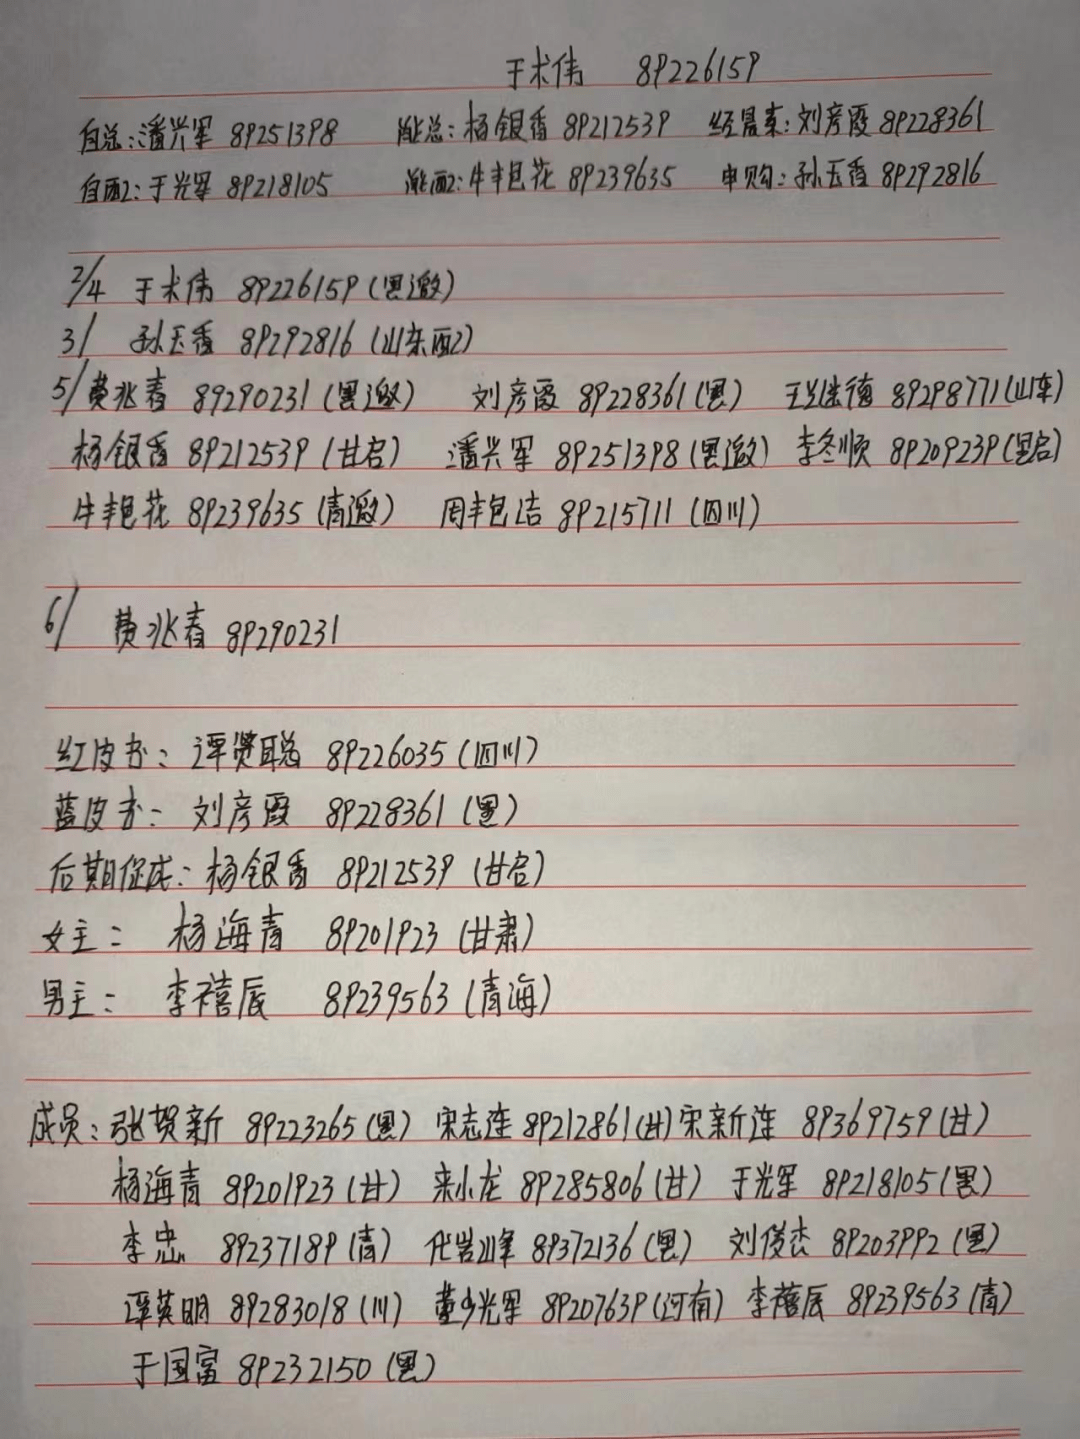 于术伟 89226159
自总:潘兴军 89251398 总:杨银香 89212539 经晨素:刘彦霞 89228361
自配2:于光军 89218105 配2:牛艳花 89239635 申购:孙玉香 89292816
2/4 于术伟 89226159(黑邀)
3/ 孙玉香 89292816 (山东配2)
5/黄兆春 89290231(黑邀) 刘彦霞 89228361(黑) 王继德 89298771(山东)
杨银香 89212539 (甘启) 潘兴军 89251398(黑邀) 李冬顺 89209239(黑启)
牛艳花 89239635(青邀) 周艳洁 89215711 (四川)
6/ 黄兆春 89290231
红皮书: 谭赞聪 89226035(四川)
蓝皮书: 刘彦霞 89228361 (黑)
后期促成: 杨银香 89212539 (甘启)
女主: 杨海青 89201923 (甘肃)
男主: 李禧辰 89239563 (青海)
成员:张贺新 89223265(黑) 宋志连 89212861(甘)宋新连 89369759(甘)
杨海青 89201923(甘) 来小龙 89285806(甘) 于光军 89218105(黑)
李忠 89237189(青) 代岩峰 89372136(黑) 刘俊杰 89203992(黑)
谭英明 89283018(川) 董少光军 89207639(河南) 李禧辰 89239563(青)
于国富 89232150(黑)